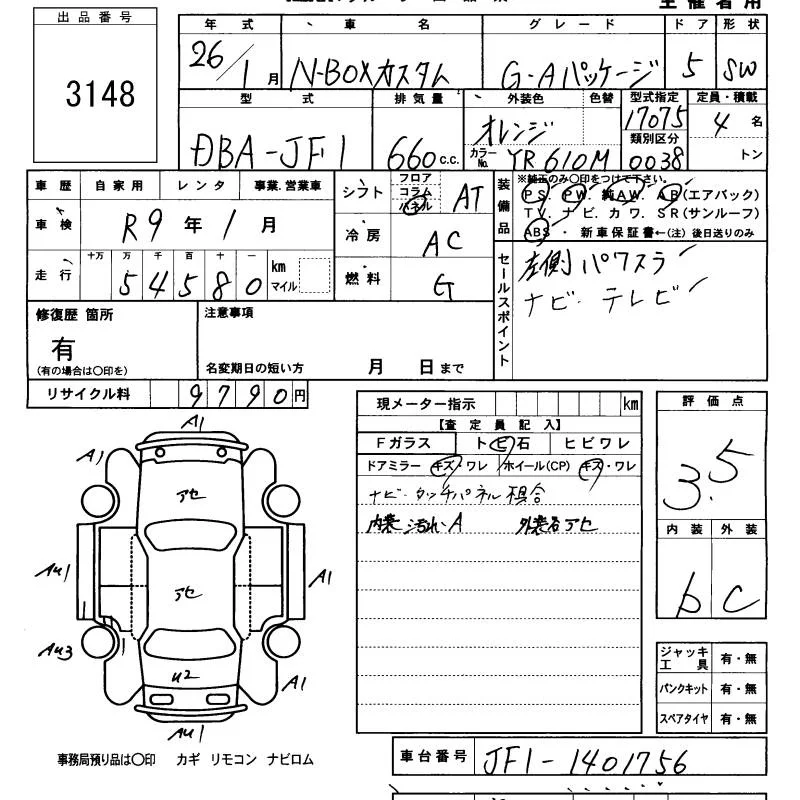 主催者用
出品番号
3148
年式 車名 グレード ドア 形状
26/1月 N-BOXカスタム G-Aパッケージ 5 SW
型式 排気量 外装色 色替 型式指定 定員・積載
DBA-JF1 660c.c. オレンジ 17075 4名
カラーNo. YR610M 類別区分 0038 トン
車歴 自家用 レンタ 事業.営業車
車検 R9年1月
走行 十万 万 千 百 十 一
54580 km マイル
シフト フロア コラム パネル AT
冷房 AC
燃料 G
装備品
※純正のみ〇印をつけて下さい。
PS. PW. 純AW. AB(エアバック)
TV. ナビ. カワ. SR(サンルーフ)
ABS・新車保証書←(注)後日送りのみ
セールスポイント
左側パワスラ
ナビ. テレビ
修復歴 箇所
有
(有の場合は〇印を)
注意事項
名変期日の短い方 月 日まで
リサイクル料 9790円
現メーター指示 km
【査定員記入】
Fガラス トビ石 ヒビワレ
ドアミラー キズ・ワレ ホイール(CP) キズ・ワレ
ナビ・タッチパネル具合
内装 汚れ・A 外装色アセ
評価点
3.5
内装 外装
b C
ジャッキ 工具 有・無
パンクキット 有・無
スペアタイヤ 有・無
A1
A1
アセ
AU1
アセ
A1
AU3
U2
A1
AU1
事務局預り品は〇印 カギ リモコン ナビロム
車台番号 JF1-1401756